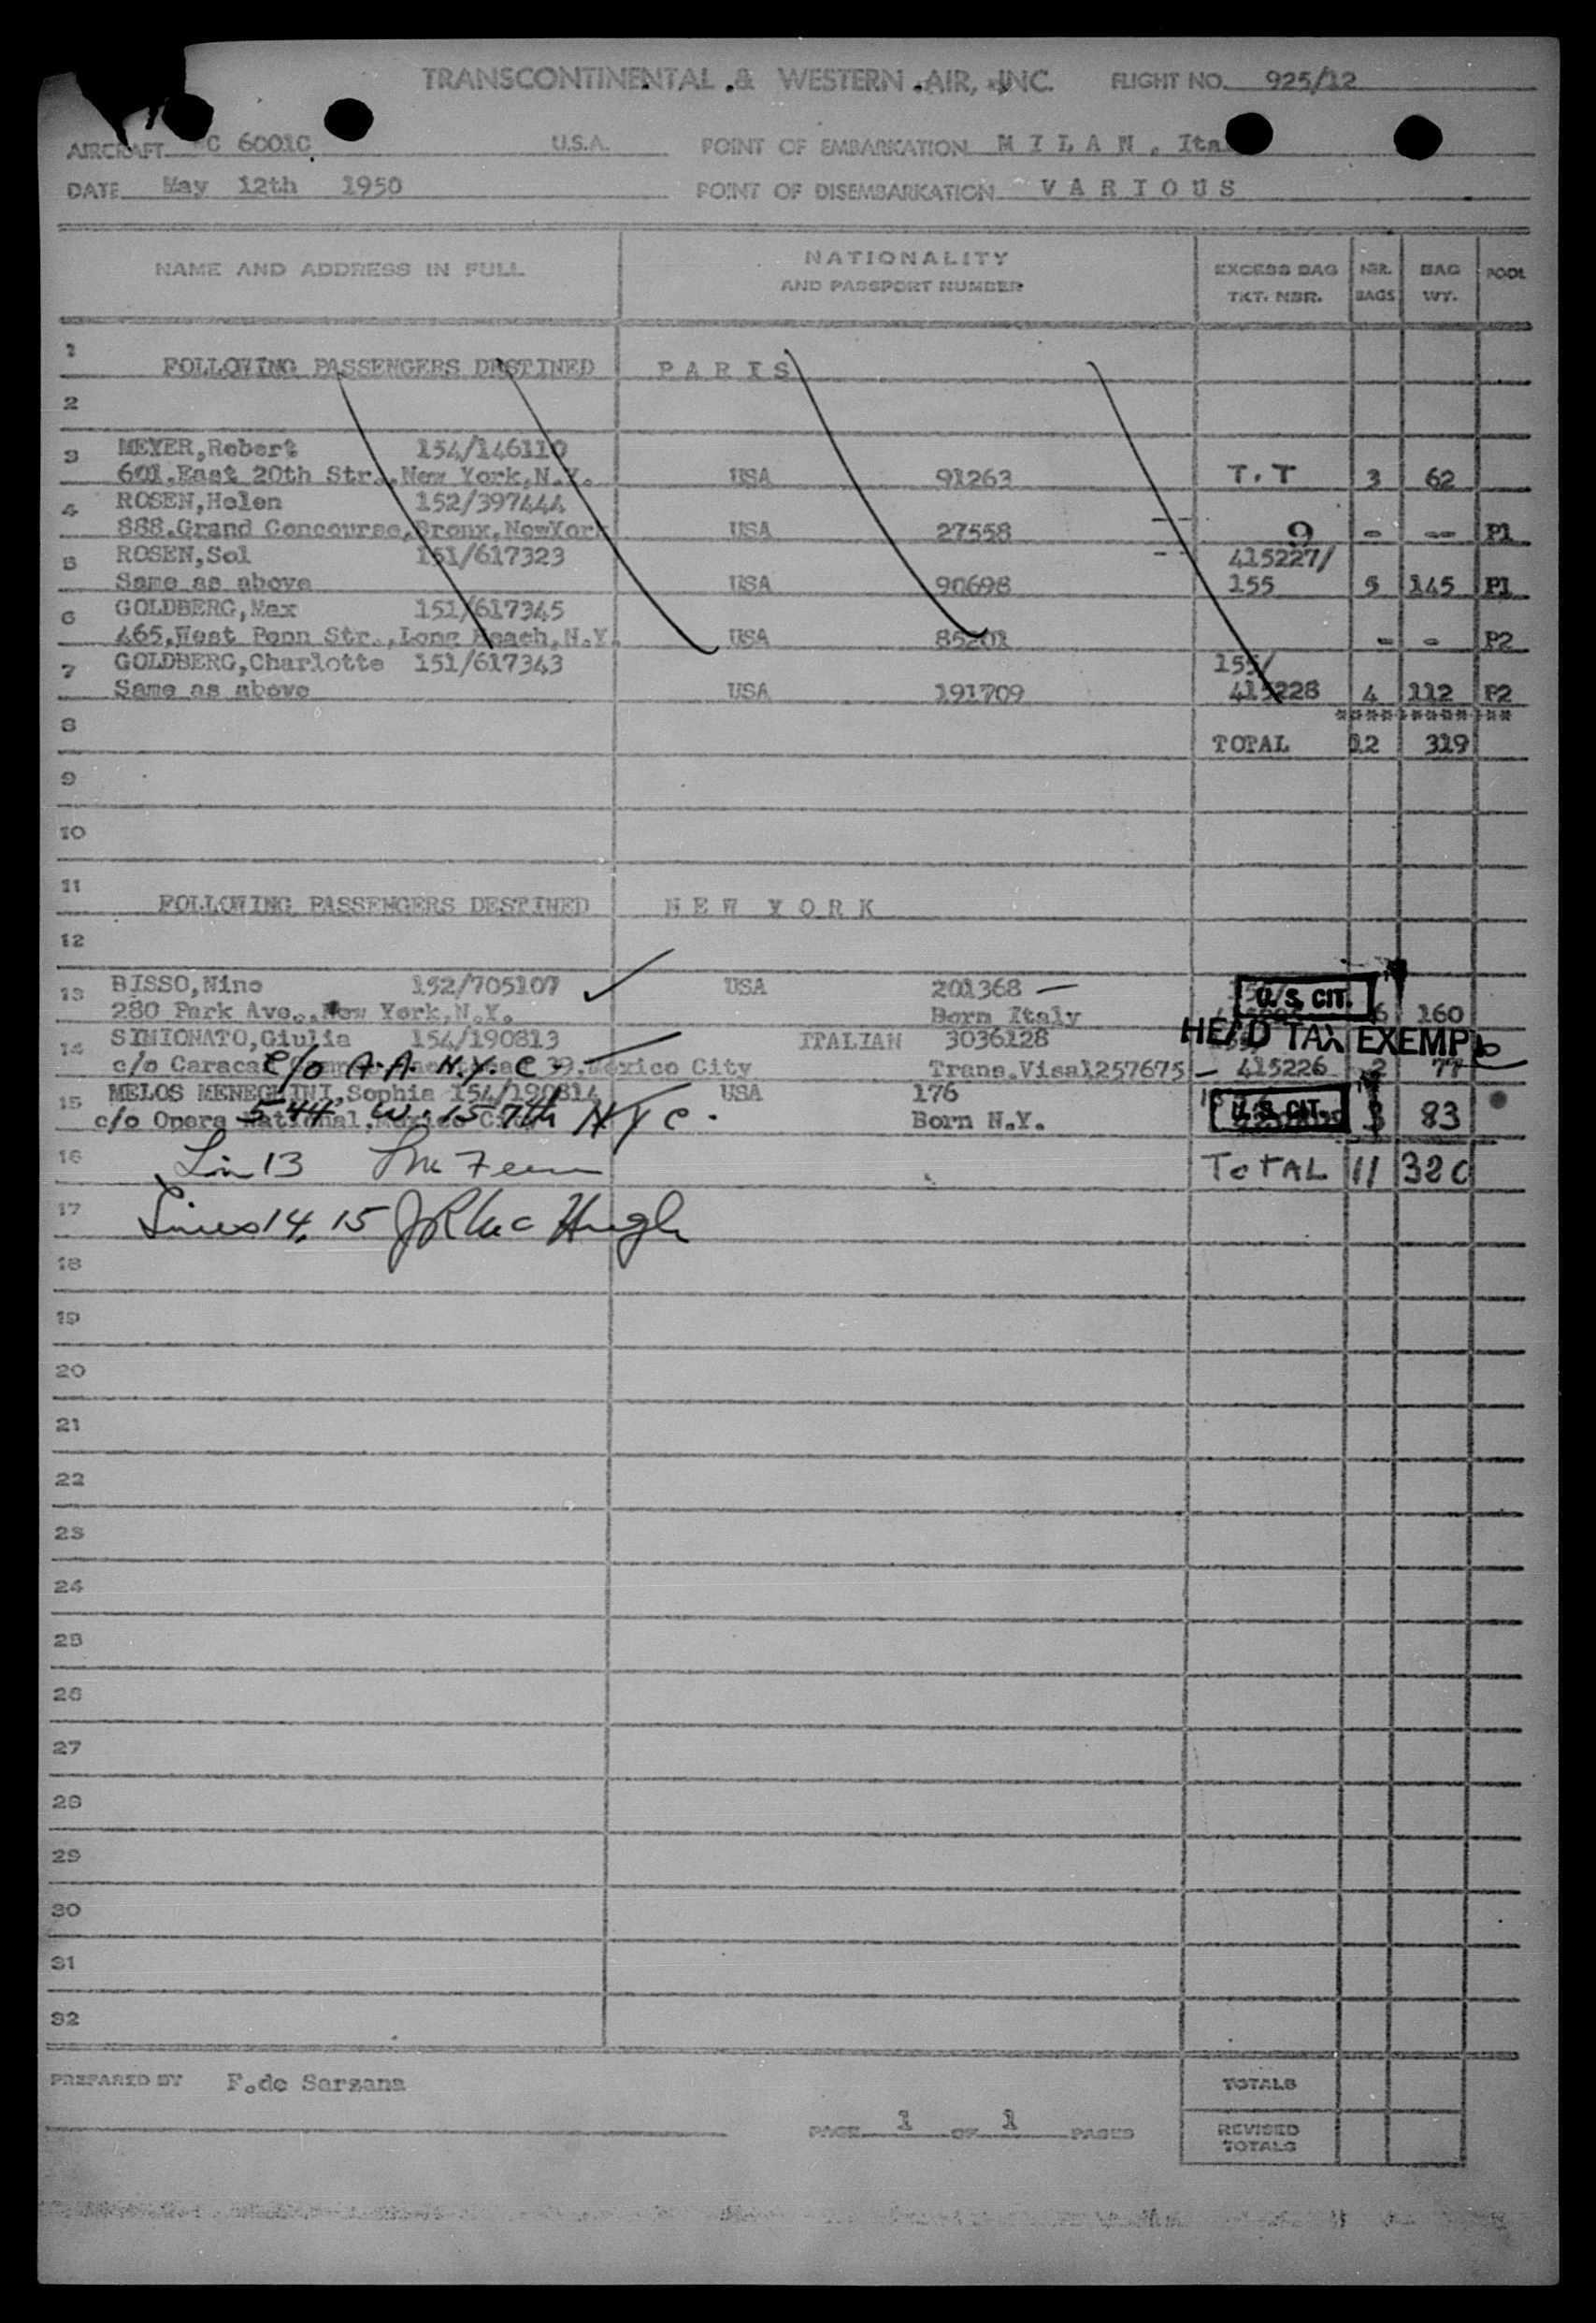 TRANSCONTINENTAL & WESTERN AIR, INC. FLIGHT NO. 925/12
AIRCRAFT C 6001C U.S.A. POINT OF EMBARKATION M I L A N , Ita
DATE May 12th 1950 POINT OF DISEMBARKATION V A R I O U S
NAME AND ADDRESS IN FULL NATIONALITY AND PASSPORT NUMBER EXCESS BAG TKT. NBR. NBR. BAGS BAG WT. POOL
1 FOLLOWING PASSENGERS DESTINED P A R I S
2
3 MEYER,Robert 154/146110
601.East 20th Str.,New York,N.Y. USA 91263 T.T 3 62
4 ROSEN,Helen 152/397444
888.Grand Concourse,Bronx,NewYork USA 27558 -- 9 - -- P1
5 ROSEN,Sol 151/617323 -- 415227/
Same as above USA 90698 155 5 145 P1
6 GOLDBERG,Max 151/617345
465.West Penn Str.,Long Beach,N.Y. USA 85201 - - P2
7 GOLDBERG,Charlotte 151/617343 155/
Same as above USA 191709 415228 4 112 P2
8 TOTAL 12 319
9
10
11 FOLLOWING PASSENGERS DESTINED N E W Y O R K
12
13 BISSO,Nino 152/705107 USA 201368 — U.S. CIT.
280 Park Ave.,New York,N.Y. Born Italy 6 160
14 SIMIONATO,Giulia 154/190813 ITALIAN 3036128 HEAD TAX EXEMP
c/o Caracas c/o A.A. N.Y.C. 39.Mexico City Trans.Visa1257675 - 415226 2 77
15 MELOS MENEGHINI,Sophia 154/190814 USA 176 U.S. CIT.
c/o Opera National.Mexico City 544 W. 157th NYC. Born N.Y. 3 83
16 Lin 13 TOTAL 11 320
17 Lines 14, 15 JR McHugh
18
19
20
21
22
23
24
25
26
27
28
29
30
31
32
PREPARED BY F.de Sarzana TOTALS
PAGE 1 OF 1 PAGES REVISED TOTALS